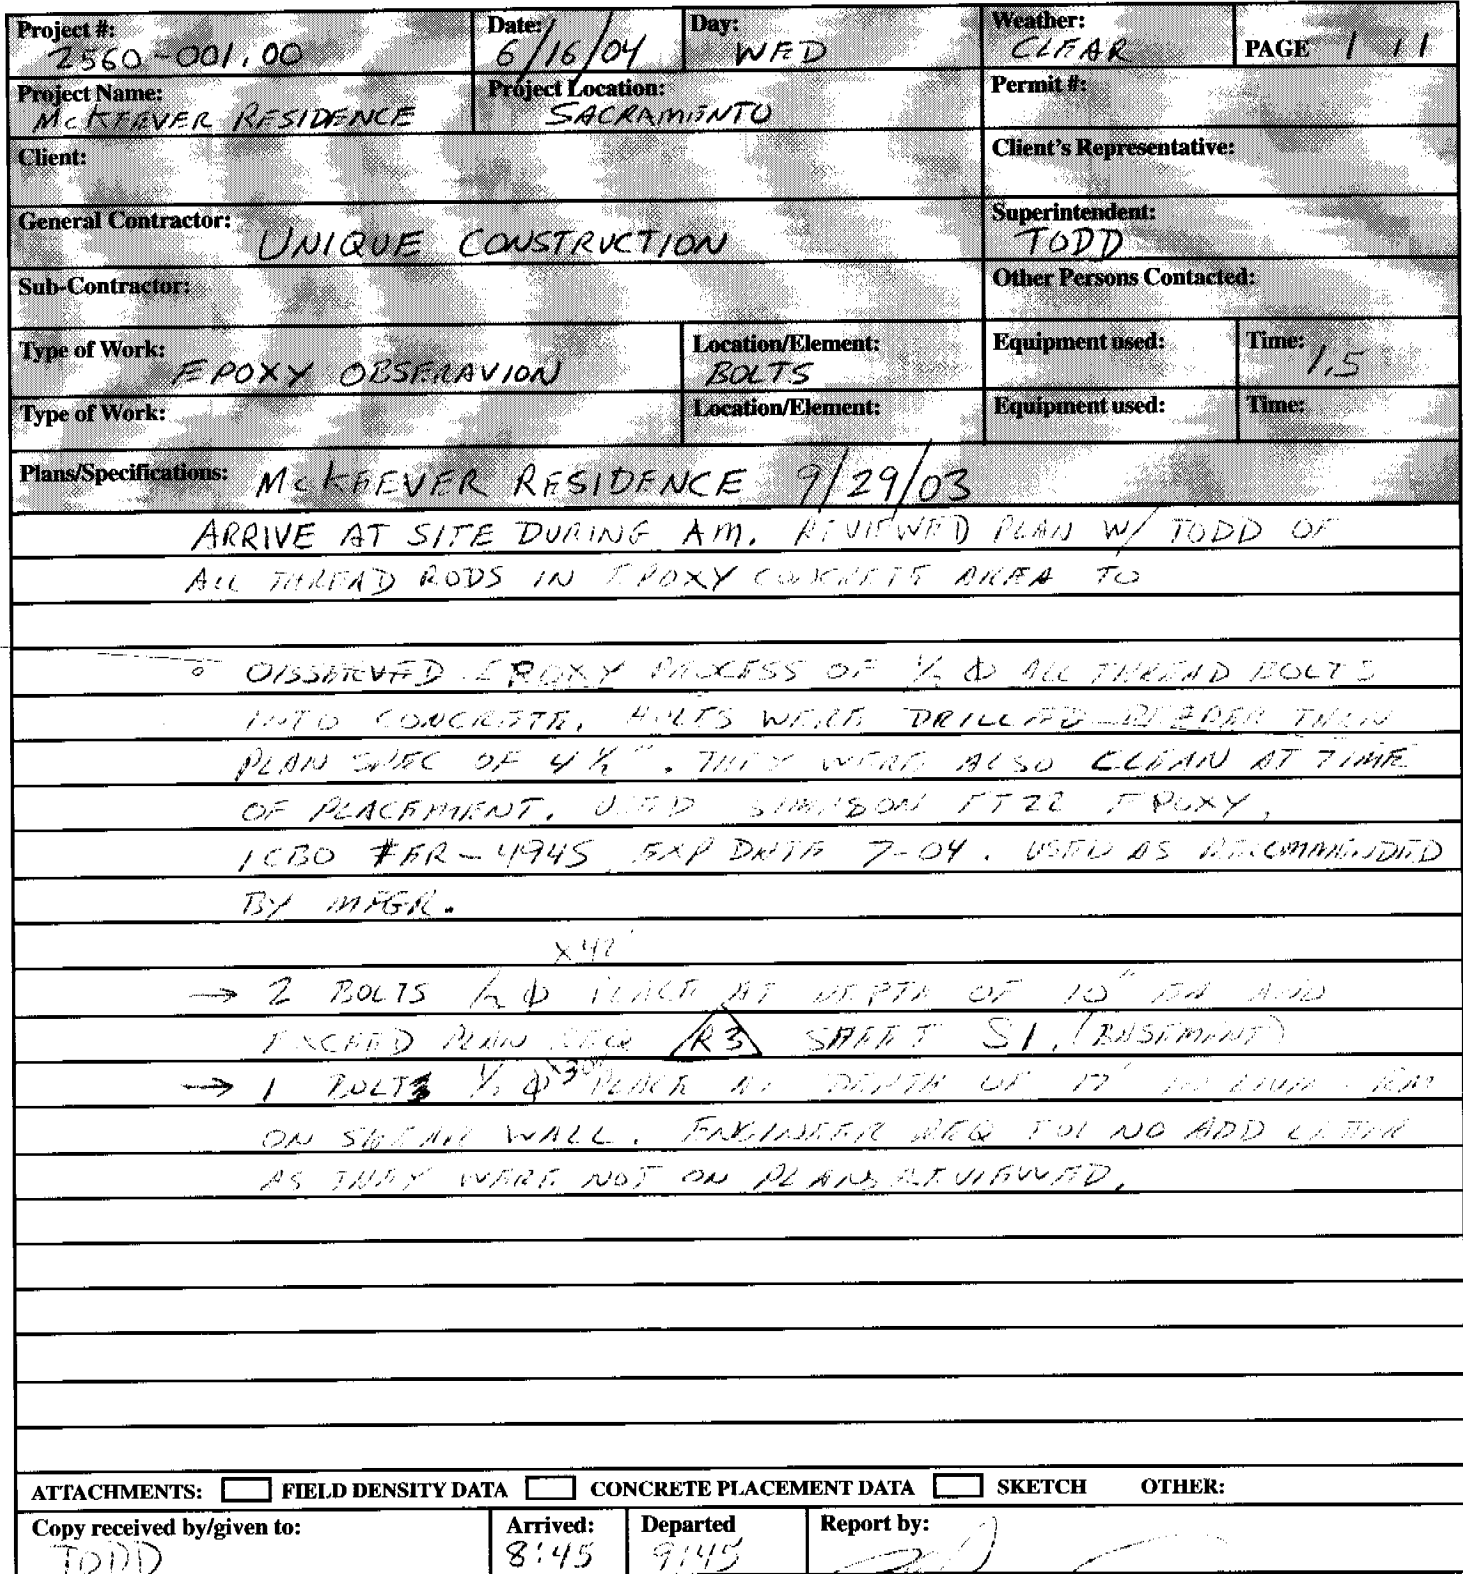 Project #: 2560-001.00
Date: 6/16/04
Day: WED
Weather: CLEAR
PAGE 1 / 1
Project Name: McKEEVER RESIDENCE
Project Location: SACRAMENTO
Permit #:
Client:
Client's Representative:
General Contractor: UNIQUE CONSTRUCTION
Superintendent: TODD
Sub-Contractor:
Other Persons Contacted:
Type of Work: EPOXY OBSERAVION
Location/Element: BOLTS
Equipment used:
Time: 1.5
Type of Work:
Location/Element:
Equipment used:
Time:
Plans/Specifications: McKEEVER RESIDENCE 9/29/03
ARRIVE AT SITE DURING AM. REVIEWED PLAN W/ TODD OF
ALL THREAD RODS IN EPOXY CONCRETE AREA TO
OBSERVED EPOXY PROCESS OF 1/2 Φ ALL THREAD BOLTS
INTO CONCRETE. HOLES WERE DRILLED DEEPER THEN
PLAN SPEC OF 4 1/2". THEY WERE ALSO CLEAN AT TIME
OF PLACEMENT. USED SIMPSON ET22 EPOXY,
ICBO #ER-4945 EXP DATE 7-04. USED AS RECOMMENDED
BY MFGR.
→ 2 BOLTS 1/2 Φ PLACE AT DEPTH OF 10" EA AND
EXCEED PLAN REQ R3 SHEET S1. (BASEMENT)
→ 1 BOLT 1/2 Φ PLACE AT DEPTH OF
ON SHEAR WALL. ENGINEER REQ
AS THEY WERE NOT ON PLANS REVIEWED.
ATTACHMENTS: FIELD DENSITY DATA CONCRETE PLACEMENT DATA SKETCH OTHER:
Copy received by/given to: TODD
Arrived: 8:45
Departed 9:45
Report by: